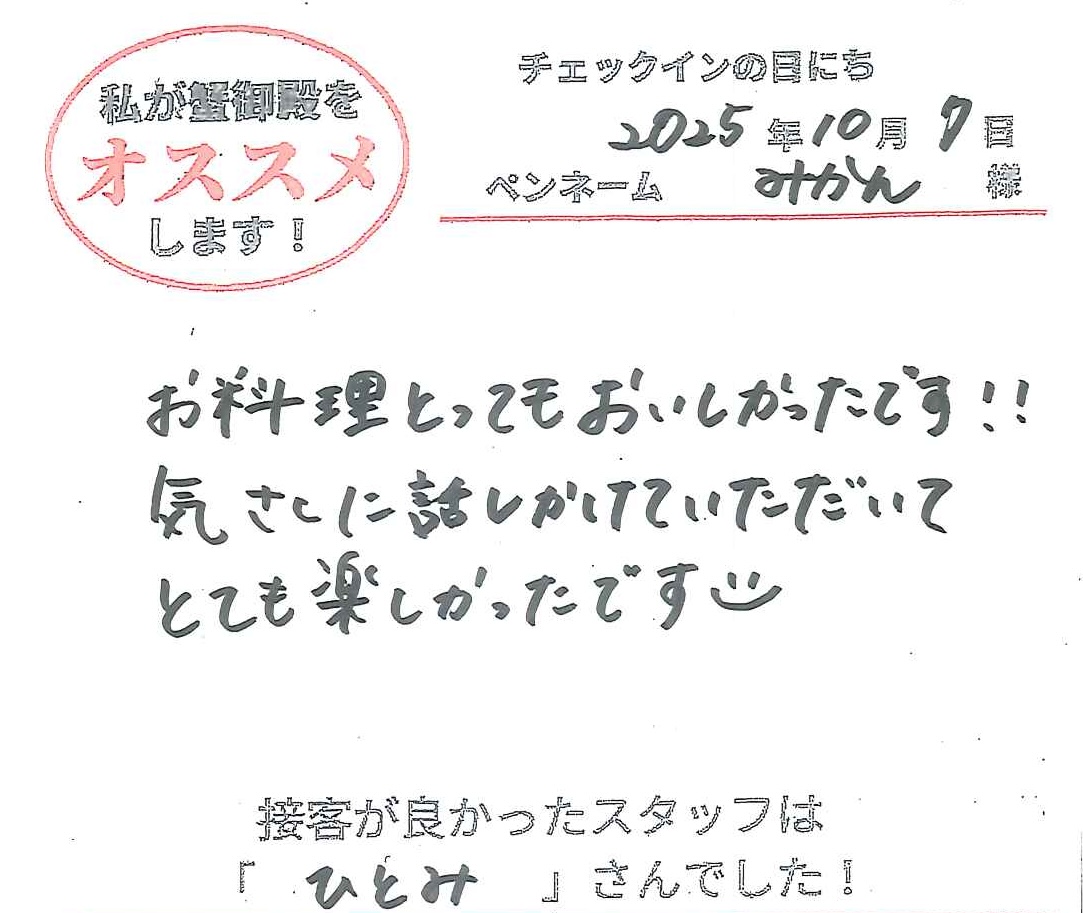 私が蟹御殿を
オススメ
します！
チェックインの日にち
2025年10月7日
ペンネーム みかん 様
お料理とってもおいしかったです!!
気さくに話しかけていただいて
とても楽しかったです
接客が良かったスタッフは
「 ひとみ 」さんでした！